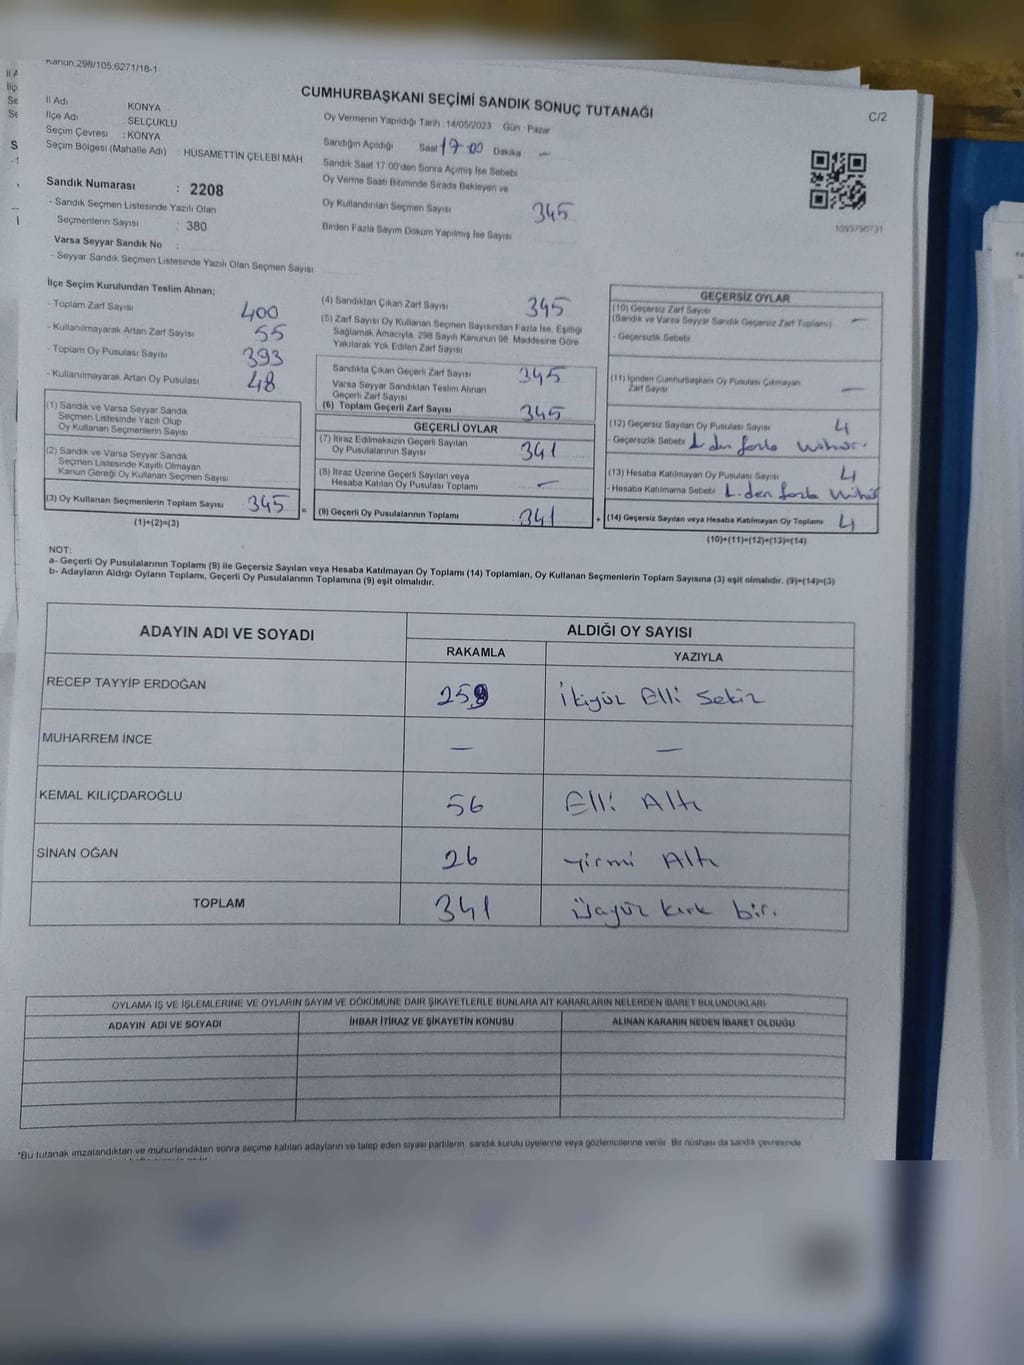 Kanun:298/105;6271/18-1
CUMHURBAŞKANI SEÇİMİ SANDIK SONUÇ TUTANAĞI
C/2
İl Adı KONYA
İlçe Adı SELÇUKLU
Seçim Çevresi : KONYA
Seçim Bölgesi (Mahalle Adı) : HÜSAMETTİN ÇELEBİ MAH
Sandık Numarası : 2208
- Sandık Seçmen Listesinde Yazılı Olan
Seçmenlerin Sayısı : 380
Varsa Seyyar Sandık No :
- Seyyar Sandık Seçmen Listesinde Yazılı Olan Seçmen Sayısı
Oy Vermenin Yapıldığı Tarih :14/05/2023 Gün : Pazar
Sandığın Açıldığı Saat 17:00 Dakika —
Sandık Saat 17:00'den Sonra Açımış İse Sebebi
Oy Verme Saati Bitiminde Sırada Bekleyen ve
Oy Kullandırılan Seçmen Sayısı 345
Birden Fazla Sayım Döküm Yapılmış İse Sayısı
1093790731
İlçe Seçim Kurulundan Teslim Alınan;
- Toplam Zarf Sayısı 400
- Kullanılmayarak Artan Zarf Sayısı 55
- Toplam Oy Pusulası Sayısı 393
- Kullanılmayarak Artan Oy Pusulası 48
(1) Sandık ve Varsa Seyyar Sandık
Seçmen Listesinde Yazılı Olup
Oy Kullanan Seçmenlerin Sayısı
(2) Sandık ve Varsa Seyyar Sandık
Seçmen Listesinde Kayıtlı Olmayan
Kanun Gereği Oy Kullanan Seçmen Sayısı
(3) Oy Kullanan Seçmenlerin Toplam Sayısı 345 =
(1)+(2)=(3)
(4) Sandıktan Çıkan Zarf Sayısı 345
(5) Zarf Sayısı Oy Kullanan Seçmen Sayısından Fazla İse, Eşitliği
Sağlamak Amacıyla, 298 Sayılı Kanunun 98. Maddesine Göre
Yakılarak Yok Edilen Zarf Sayısı
Sandıkta Çıkan Geçerli Zarf Sayısı 345
Varsa Seyyar Sandıktan Teslim Alınan
Geçerli Zarf Sayısı
(6) Toplam Geçerli Zarf Sayısı 345
GEÇERLİ OYLAR
(7) İtiraz Edilmeksizin Geçerli Sayılan
Oy Pusulalarının Sayısı 341
(8) İtiraz Üzerine Geçerli Sayılan veya
Hesaba Katılan Oy Pusulası Toplamı —
(9) Geçerli Oy Pusulalarının Toplamı 341 +
GEÇERSİZ OYLAR
(10) Geçersiz Zarf Sayısı
(Sandık ve Varsa Seyyar Sandık Geçersiz Zarf Toplamı) —
- Geçersizlik Sebebi
(11) İçinden Cumhurbaşkanı Oy Pusulası Çıkmayan
Zarf Sayısı —
(12) Geçersiz Sayılan Oy Pusulası Sayısı 4
- Geçersizlik Sebebi 1.den fazla
(13) Hesaba Katılmayan Oy Pusulası Sayısı 4
- Hesaba Katılmama Sebebi 1.den fazla
(14) Geçersiz Sayılan veya Hesaba Katılmayan Oy Toplamı 4
(10)+(11)+(12)+(13)=(14)
NOT:
a- Geçerli Oy Pusulalarının Toplamı (9) ile Geçersiz Sayılan veya Hesaba Katılmayan Oy Toplamı (14) Toplamları, Oy Kullanan Seçmenlerin Toplam Sayısına (3) eşit olmalıdır. (9)+(14)=(3)
b- Adayların Aldığı Oyların Toplamı, Geçerli Oy Pusulalarının Toplamına (9) eşit olmalıdır.
ADAYIN ADI VE SOYADI ALDIĞI OY SAYISI
RAKAMLA YAZIYLA
RECEP TAYYİP ERDOĞAN 259 İkiyüz Elli Sekiz
MUHARREM İNCE — —
KEMAL KILIÇDAROĞLU 56 Elli Altı
SİNAN OĞAN 26 yirmi Altı
TOPLAM 341 Üçyüz kırk bir.
OYLAMA İŞ VE İŞLEMLERİNE VE OYLARIN SAYIM VE DÖKÜMÜNE DAİR ŞİKAYETLERLE BUNLARA AİT KARARLARIN NELERDEN İBARET BULUNDUKLARI
ADAYIN ADI VE SOYADI İHBAR İTİRAZ VE ŞİKAYETİN KONUSU ALINAN KARARIN NEDEN İBARET OLDUĞU
*Bu tutanak imzalandıktan ve mühürlendikten sonra seçime katılan adayların ve talep eden siyasi partilerin sandık kurulu üyelerine veya gözlemcilerine verilir. Bir nüshası da sandık çevresinde